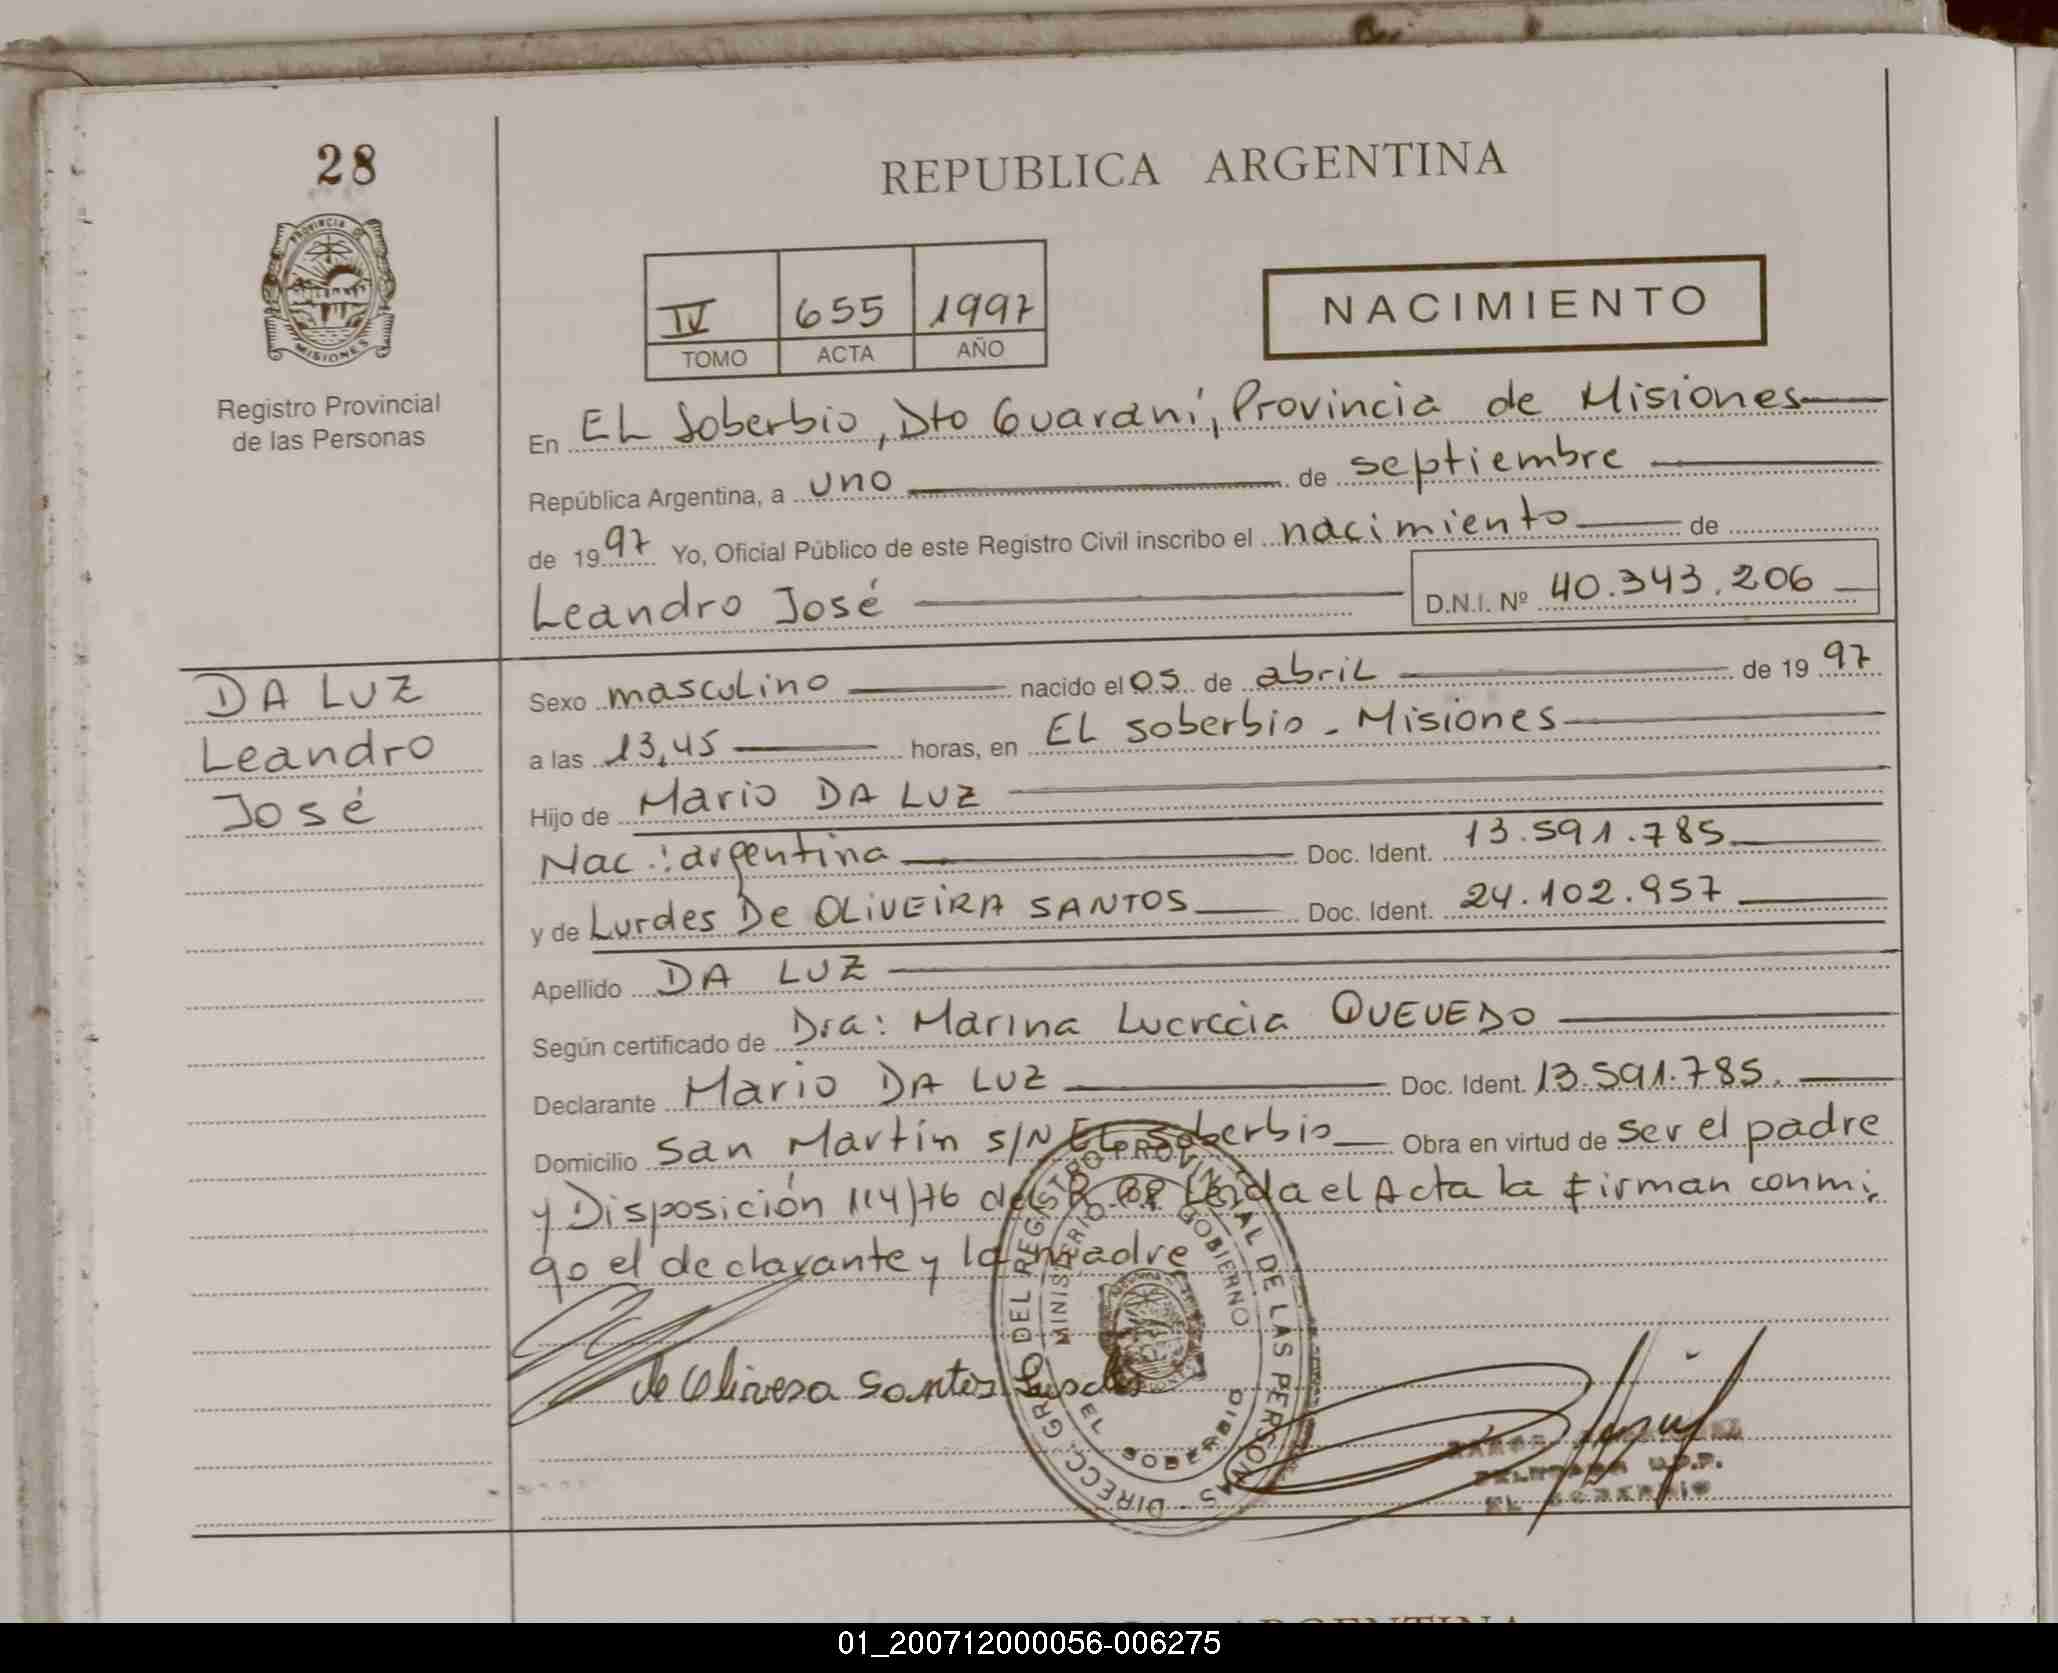 28
REPUBLICA ARGENTINA
PROVINCIA DE
MISIONES
Registro Provincial
de las Personas
IV 655 1997
TOMO ACTA AÑO
NACIMIENTO
En EL Soberbio, Dto Guaraní, Provincia de Misiones
República Argentina, a uno de septiembre
de 1997 Yo, Oficial Público de este Registro Civil inscribo el nacimiento de
Leandro José D.N.I. Nº 40.343.206
DA LUZ
Leandro
José
Sexo masculino nacido el 05 de abril de 1997
a las 13,45 horas, en EL Soberbio - Misiones
Hijo de Mario DA LUZ
Nac.: argentina Doc. Ident. 13.591.785
y de Lurdes De OLIVEIRA SANTOS Doc. Ident. 24.102.957
Apellido DA LUZ
Según certificado de Dra: Marina Lucrecia QUEVEDO
Declarante Mario DA LUZ Doc. Ident. 13.591.785.
Domicilio San Martín S/N EL Soberbio Obra en virtud de ser el padre
y Disposición 114/76 del R.PP Leida el Acta la firman conmi
go el declarante y la madre
de Olivera Santos Lurdes
DIRECC. GRAL. DEL REGISTRO PROVINCIAL DE LAS PERSONAS
MINISTERIO DE GOBIERNO
EL SOBERBIO
DELEGADA
EL SOBERBIO
REPUBLICA ARGENTINA
01_200712000056-006275